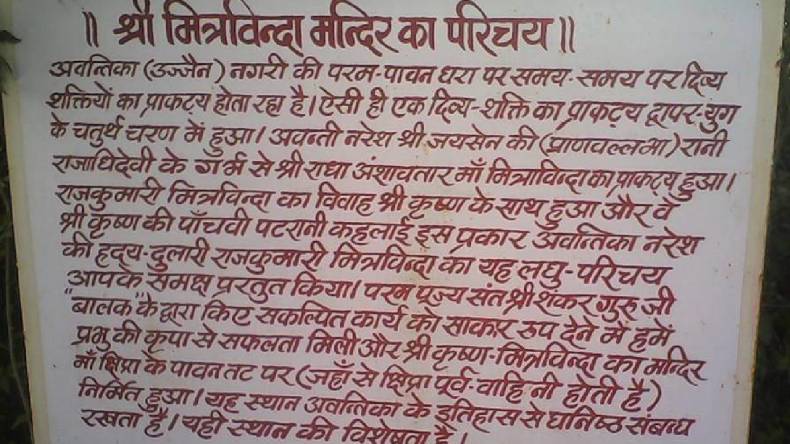 ॥ श्री मित्रविन्दा मन्दिर का परिचय ॥
अवन्तिका (उज्जैन) नगरी की परम-पावन धरा पर समय-समय पर दिव्य
शक्तियों का प्राकट्य होता रहा है। ऐसी ही एक दिव्य-शक्ति का प्राकट्य द्वापर-युग
के चतुर्थ चरण में हुआ। अवन्ती नरेश श्री जयसेन की (प्राणवल्लभा) रानी
राजाधिदेवी के गर्भ से श्री राधा अंशावतार माँ मित्राविन्दा का प्राकट्य हुआ।
राजकुमारी मित्रविन्दा का विवाह श्री कृष्ण के साथ हुआ और वे
श्री कृष्ण की पाँचवी पटरानी कहलाई इस प्रकार अवन्तिका नरेश
की हृदय-दुलारी राजकुमारी मित्रविन्दा का यह लघु-परिचय
आपके समक्ष प्रस्तुत किया। परम पूज्य संत श्री शंकर गुरु जी
"बालक" के द्वारा किए सकल्पित कार्य को साकार रुप देने में हमें
प्रभु की कृपा से सफलता मिली और श्री कृष्ण-मित्रविन्दा का मन्दिर
माँ क्षिप्रा के पावन तट पर (जहाँ से क्षिप्रा पूर्व-वाहिनी होती है)
निर्मित हुआ। यह स्थान अवन्तिका के इतिहास से घनिष्ठ संबन्ध
रखता है। यही स्थान की विशेषता है।